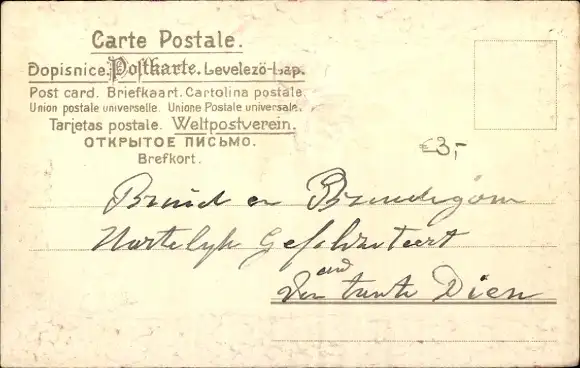 Carte Postale.
Dopisnice. Postkarte. Levelező-Lap.
Post card. Briefkaart. Cartolina postale.
Union postale universelle. Unione Postale universale.
Tarjetas postale. Weltpostverein.
ОТКРЫТОЕ ПИСЬМО.
Brefkort.
€3,-
Bruid en Bruidigom
Hartelijk Gefeliciteert
oud
Van tante Dien